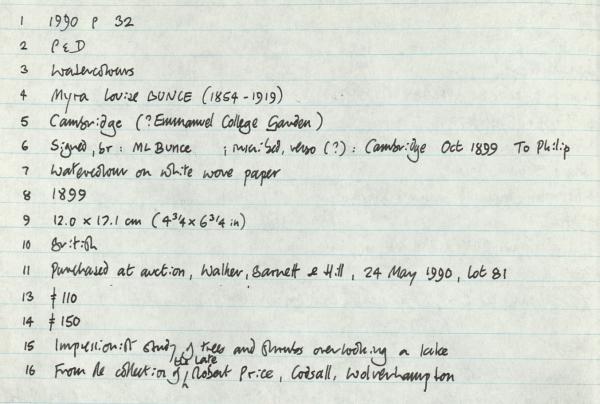 1 1990 P 32
2 P&D
3 Watercolours
4 Myra Louise BUNCE (1854-1919)
5 Cambridge (?Emmanuel College Garden)
6 Signed, br: ML Bunce ; inscribed, verso (?): Cambridge Oct 1899 To Philip
7 Watercolour on white wove paper
8 1899
9 12.0 x 17.1 cm (4 3/4 x 6 3/4 in)
10 British
11 Purchased at auction, Walker, Barnett & Hill, 24 May 1990, Lot 81
13 £110
14 £150
15 Impressionist study of trees and shrubs overlooking a lake
16 From the collection of the late Robert Price, Codsall, Wolverhampton